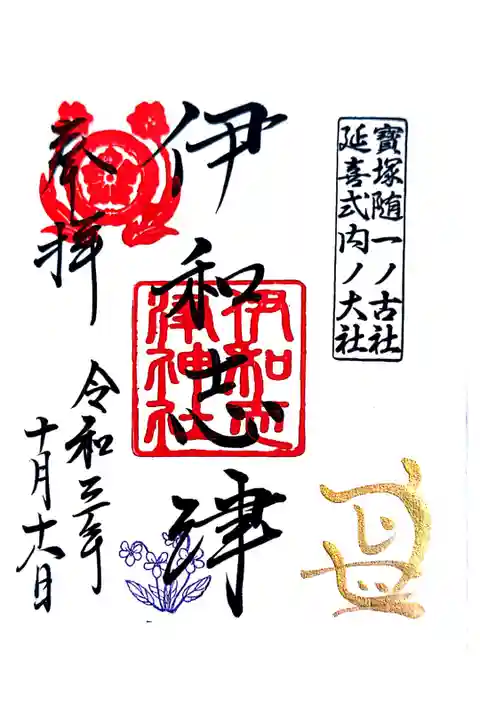 寶塚随一ノ古社
延喜式内ノ大社
伊和志津
伊和志
津神社
奉拝
令和三年
十月十八日